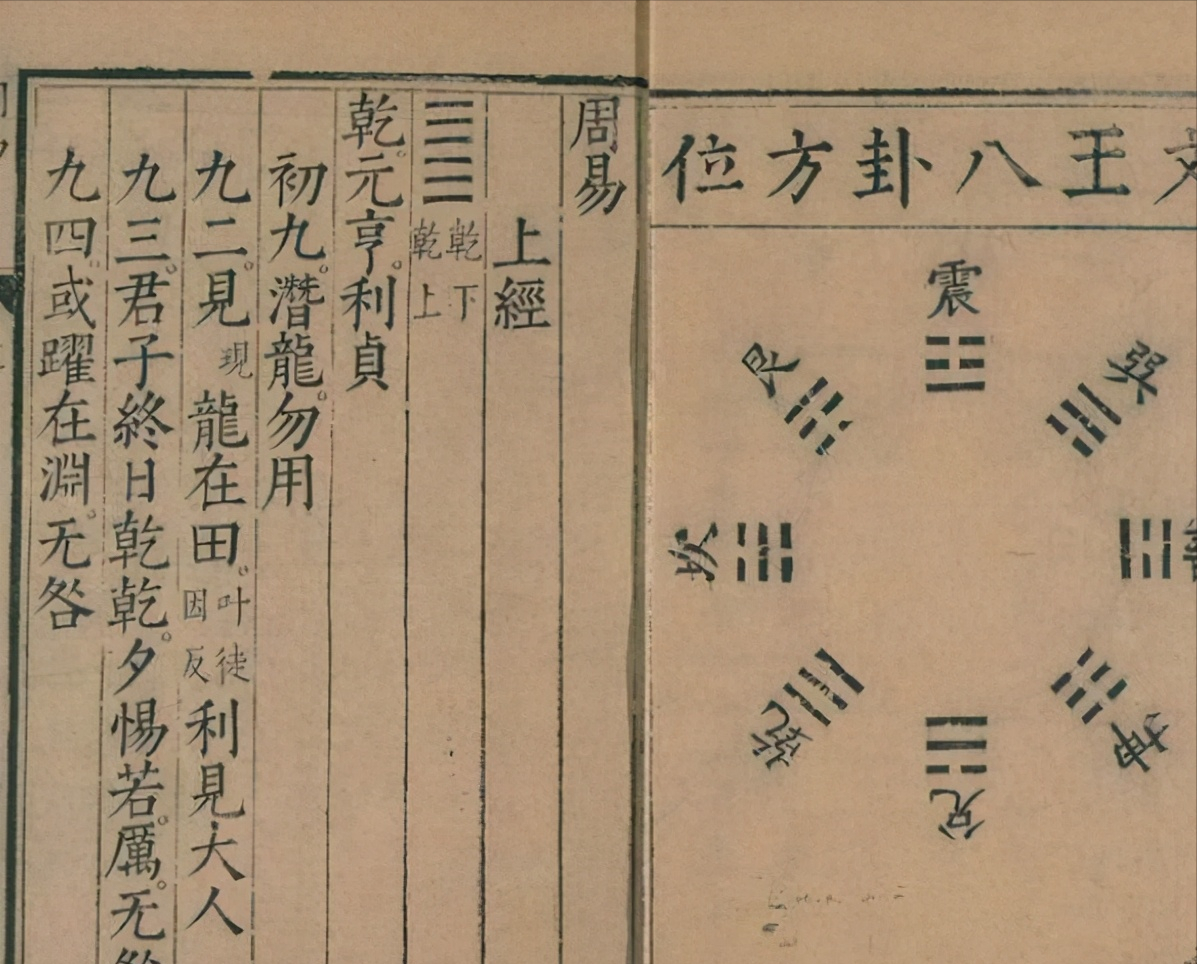 文王八卦方位
震
巽
坤
兌
乾
坎
艮
周易
上經
䷀ 乾下乾上
乾。元亨。利貞
初九。潛龍。勿用
九二。見現龍在田。叶徒因反利見大人
九三。君子終日乾乾。夕惕若。厲。无咎
九四。或躍在淵。无咎